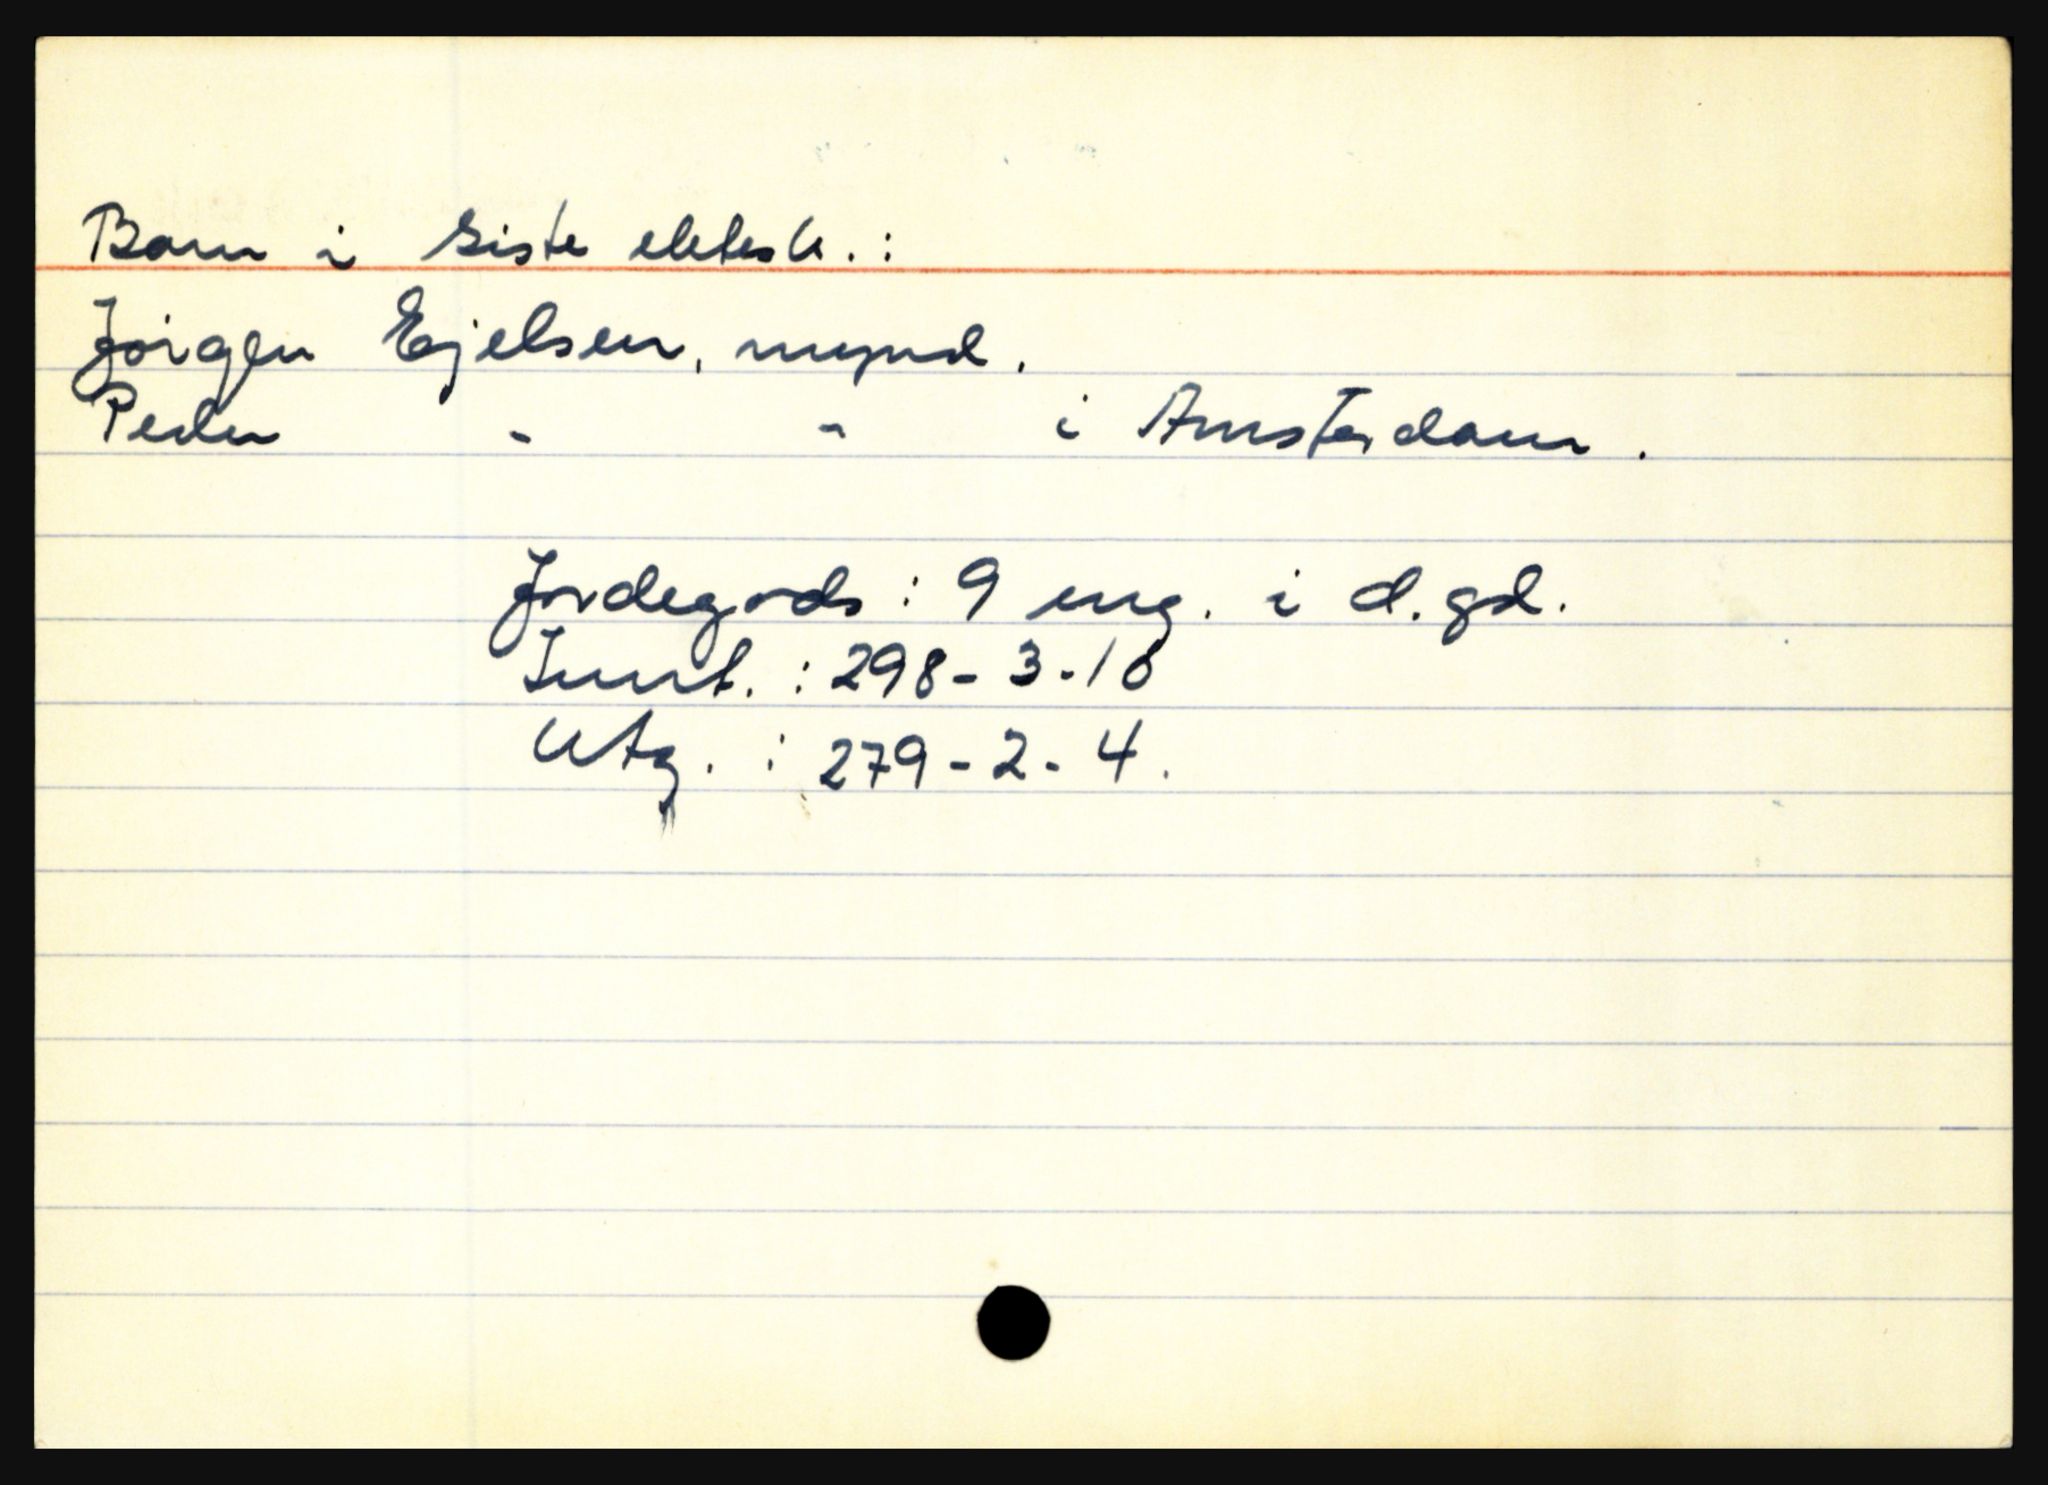 Barn i siste ektesk. :
Jörgen Ejelsen, mynd.
Peder " " i Amsterdam.
Jordegods : 9 eng. i d. gd.
Innt. : 298 - 3 - 18
Utg. : 279 - 2 - 4.